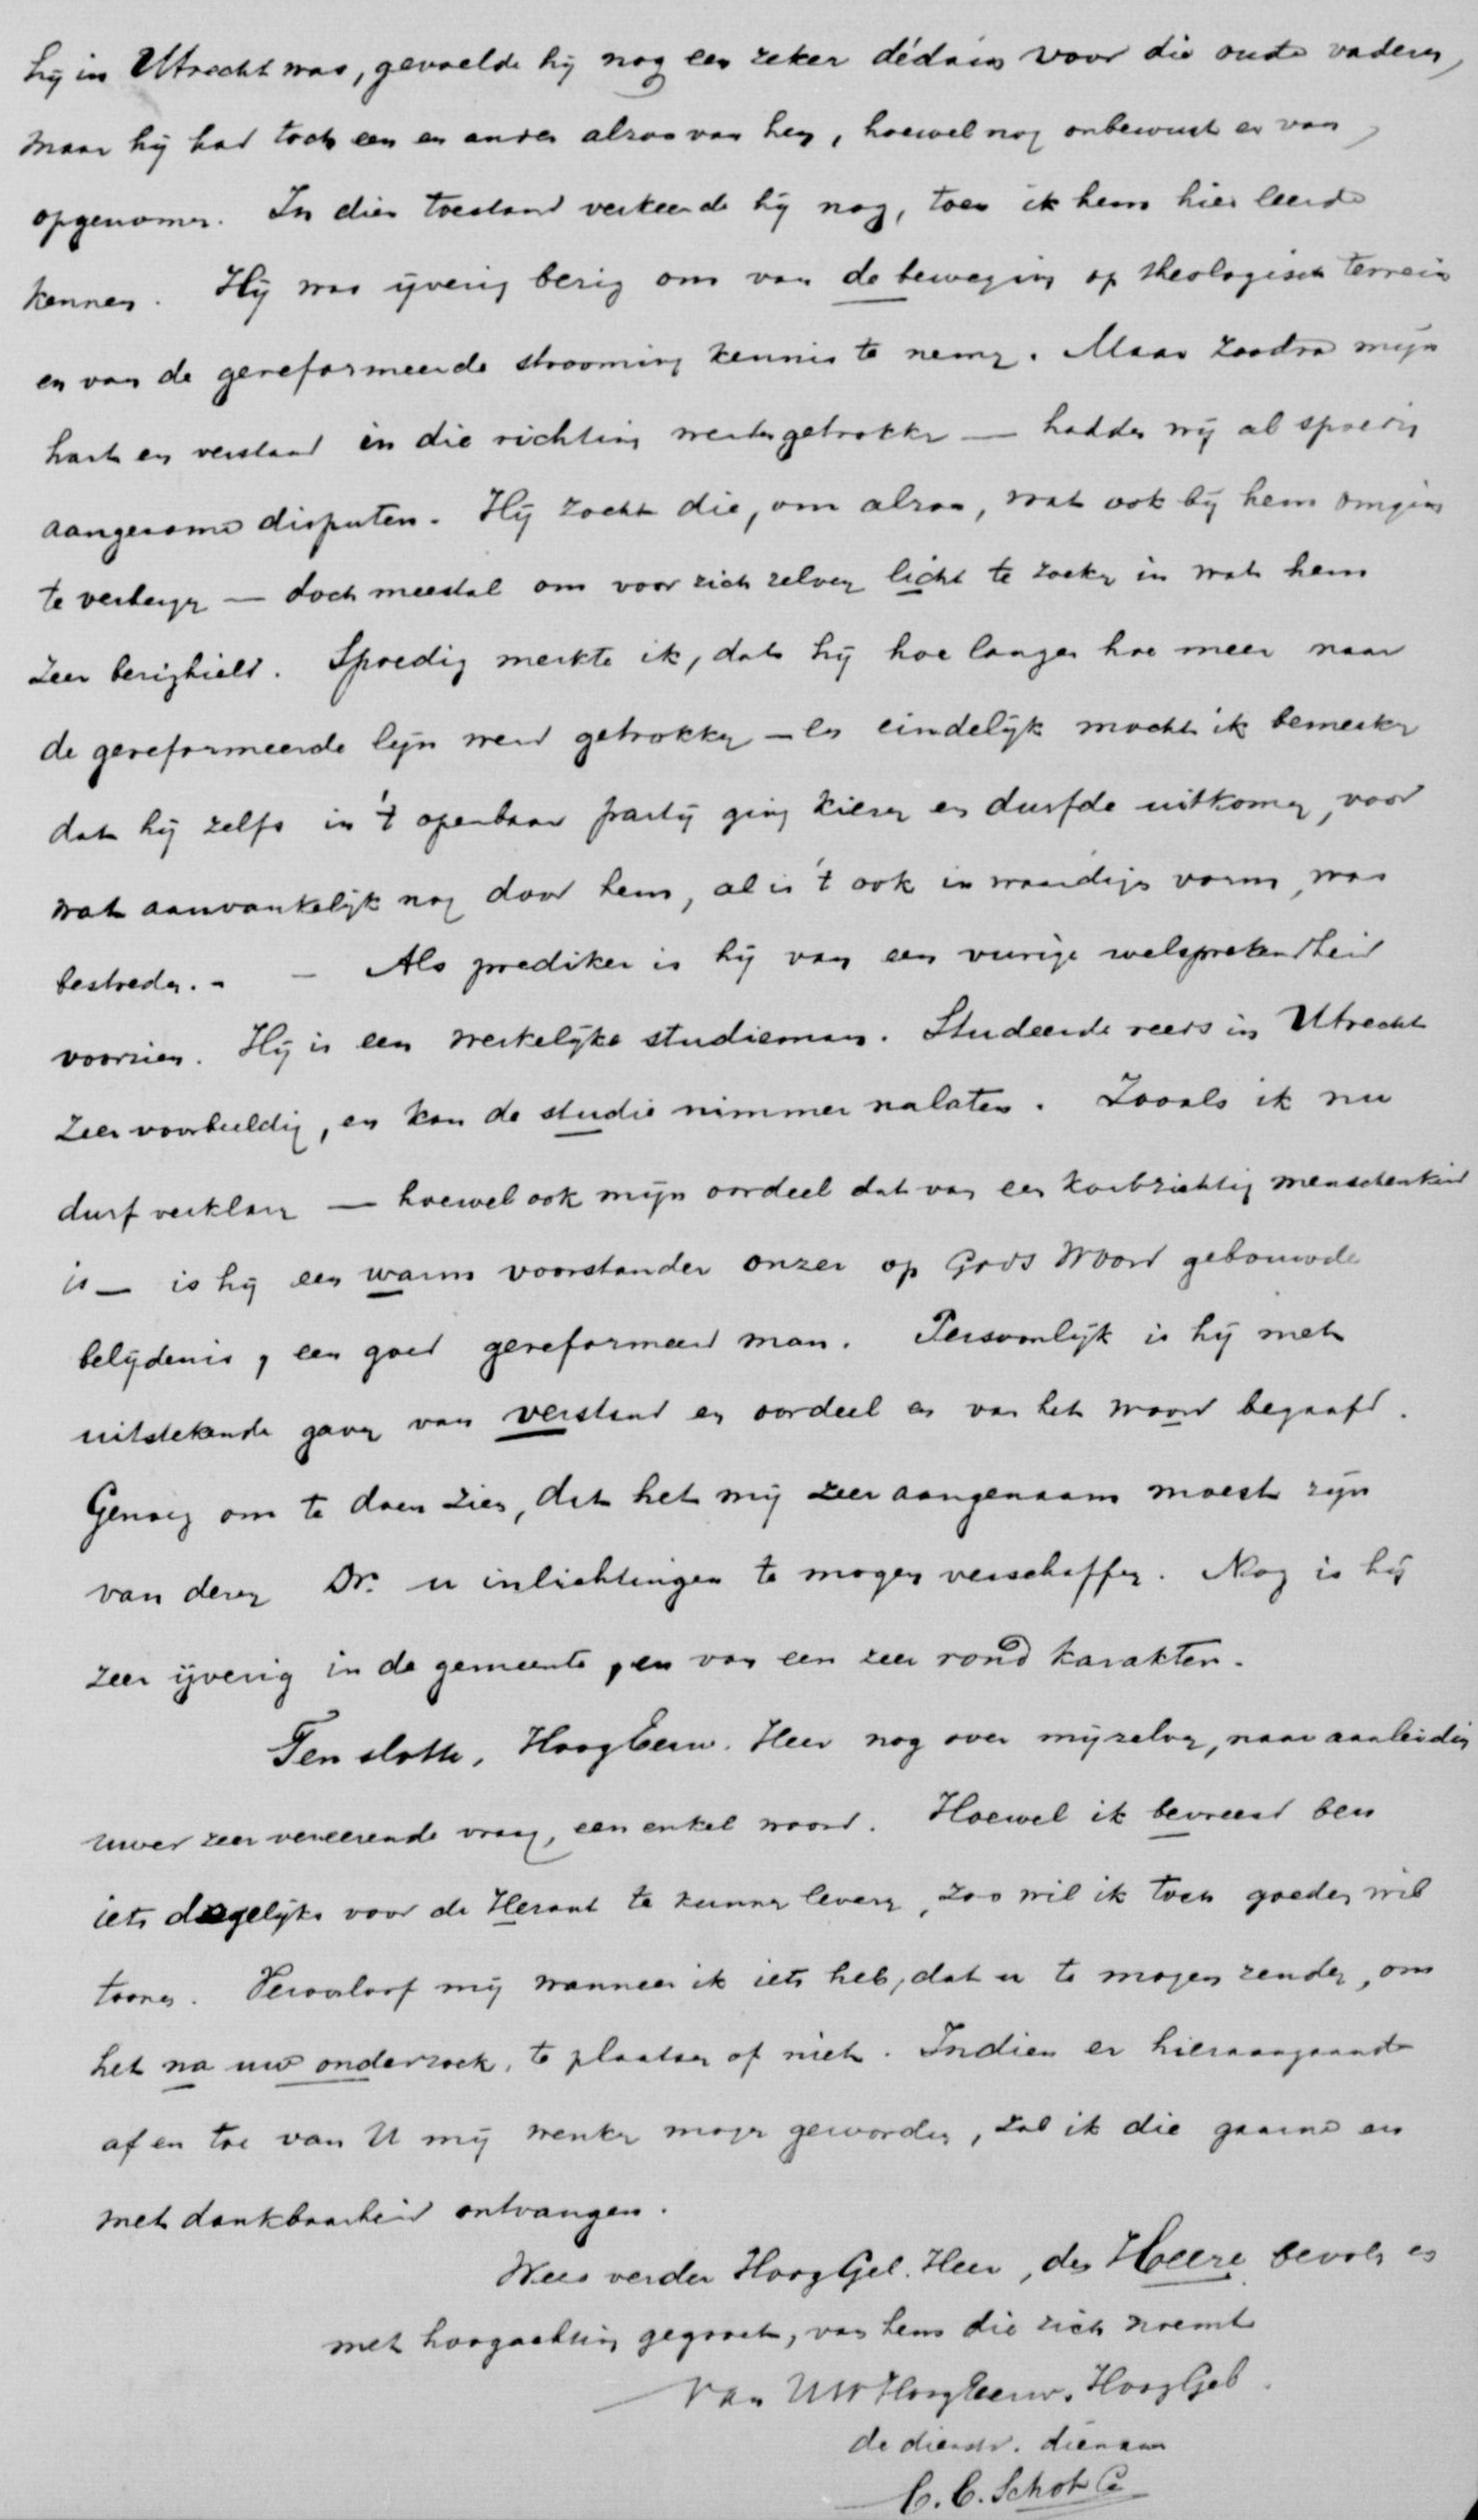 hij in Utrecht was, gevoelde hij nog een zeker dédain voor die oude vaderen,
maar hij had toch een en ander alzoo van hen, hoewel nog onbewust er van,
opgenomen. In dien toestand verkeerde hij nog, toen ik hem hier leerde
kennen. Hij was ijverig bezig om van de beweging op theologisch terrein
en van de gereformeerde strooming kennis te nemen. Maar zoodra mijn
hart en verstand in die richting werden getrokken — hadden wij al spoedig
aangename disputen. Hij zocht die, om alzoo, wat ook bij hem omging
te verbergen — doch meestal om voor zich zelven licht te zoeken in wat hem
zeer bezighield. Spoedig merkte ik, dat hij hoe langer hoe meer naar
de gereformeerde lijn werd getrokken — en eindelijk mocht ik bemerken
dat hij zelfs in 't openbaar partij ging kiezen en durfde uitkomen, voor
wat aanvankelijk nog door hem, al is 't ook in waardigen vorm, was
bestreden. - — Als prediker is hij van een vurige welsprekendheid
voorzien. Hij is een werkelijke studieman. Studeerde reeds in Utrecht
zeer voorbeeldig, en kan de studie nimmer nalaten. Zooals ik nu
durf verklaren — hoewel ook mijn oordeel dat van een kortzichtig menschenkind
is — is hij een warm voorstander onzer op Gods Woord gebouwde
belijdenis, een goed gereformeerd man. Persoonlijk is hij met
uitstekende gaven van verstand en oordeel en van het woord begaafd.
Genoeg om te doen zien, dat het mij zeer aangenaam moest zijn
van dezen Dr. u inlichtingen te mogen verschaffen. Nog is hij
zeer ijverig in de gemeente, en van een zeer rond karakter.
Ten slotte, HoogEerw. Heer nog over mijzelven, naar aanleiding
uwer zeer vereerende vraag, een enkel woord. Hoewel ik bevreesd ben
iets degelijks voor de Heraut te kunnen leveren, zoo wil ik toch goeden wil
toonen. Veroorloof mij wanneer ik iets heb, dat u te mogen zenden, om
het na uw onderzoek, te plaatsen of niet. Indien er hieraangaande
af en toe van U mij wenken mogen geworden, zal ik die gaarne en
met dankbaarheid ontvangen.
Wees verder HoogGel. Heer, den Heere bevolen en
met hoogachting gegroet, van hem die zich noemt
Van UwHoogEerw. HoogGel.
de dienstv. dienaar
C. C. Schot Cz